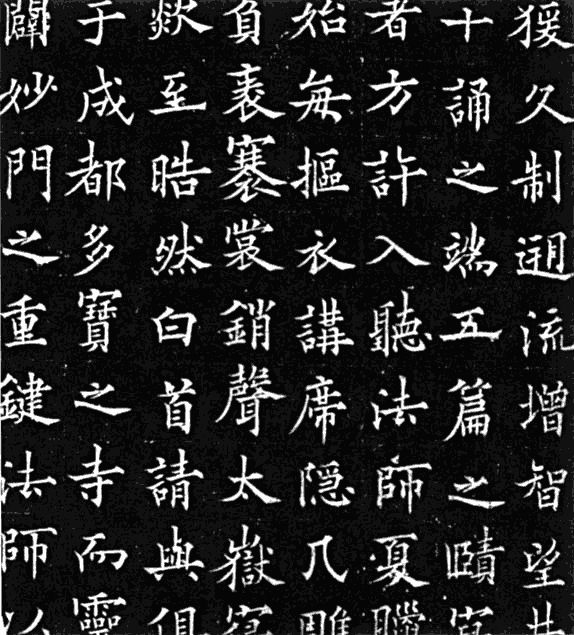 猨久制迴流增智望
十誦之端五篇之賾
者方許入聽法師夏臘
始每摳衣講席隱几雕
負袠褰裳銷聲太嶽
歘至晧然白首請與俱
于成都多寶之寺而靈
闢妙門之重鍵法師以